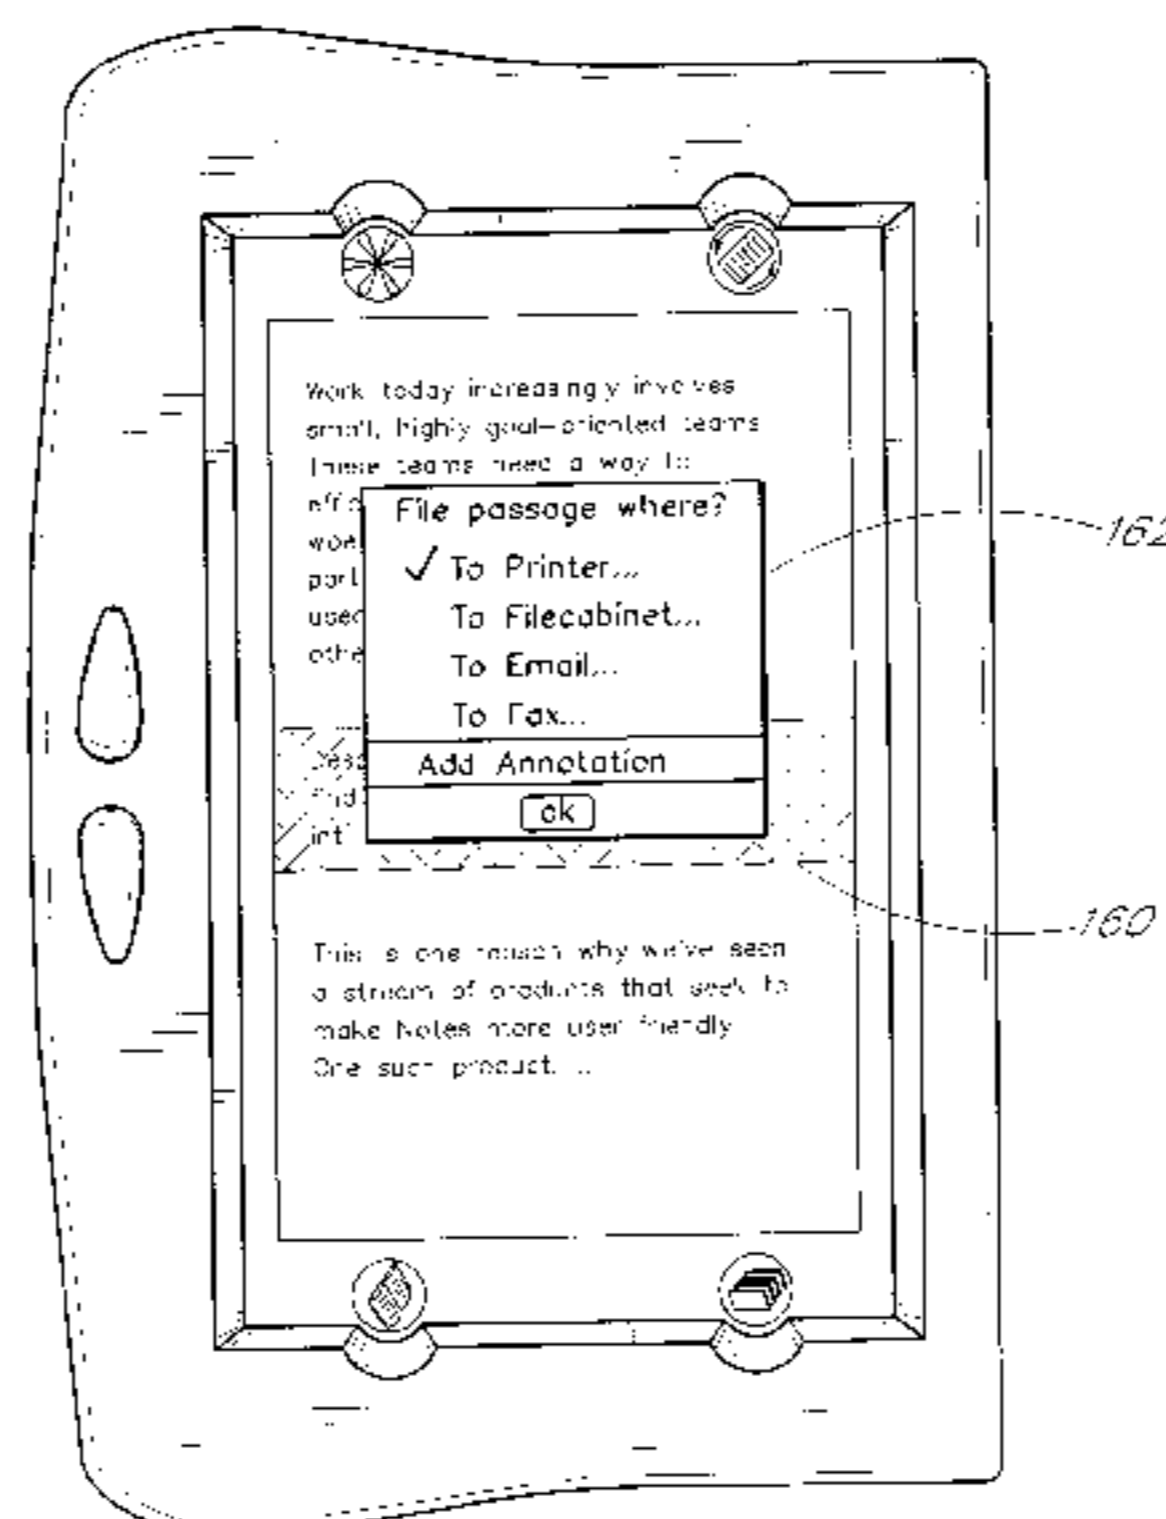 Work today increasingly involves
small, highly goal-oriented teams
These teams need a way to
File passage where?
✓ To Printer...
To Filecabinet...
To Email...
To Fax...
Add Annotation
ok
162
160
This is one reason why we've seen
a stream of products that seek to
make Notes more user friendly
One such product. ..